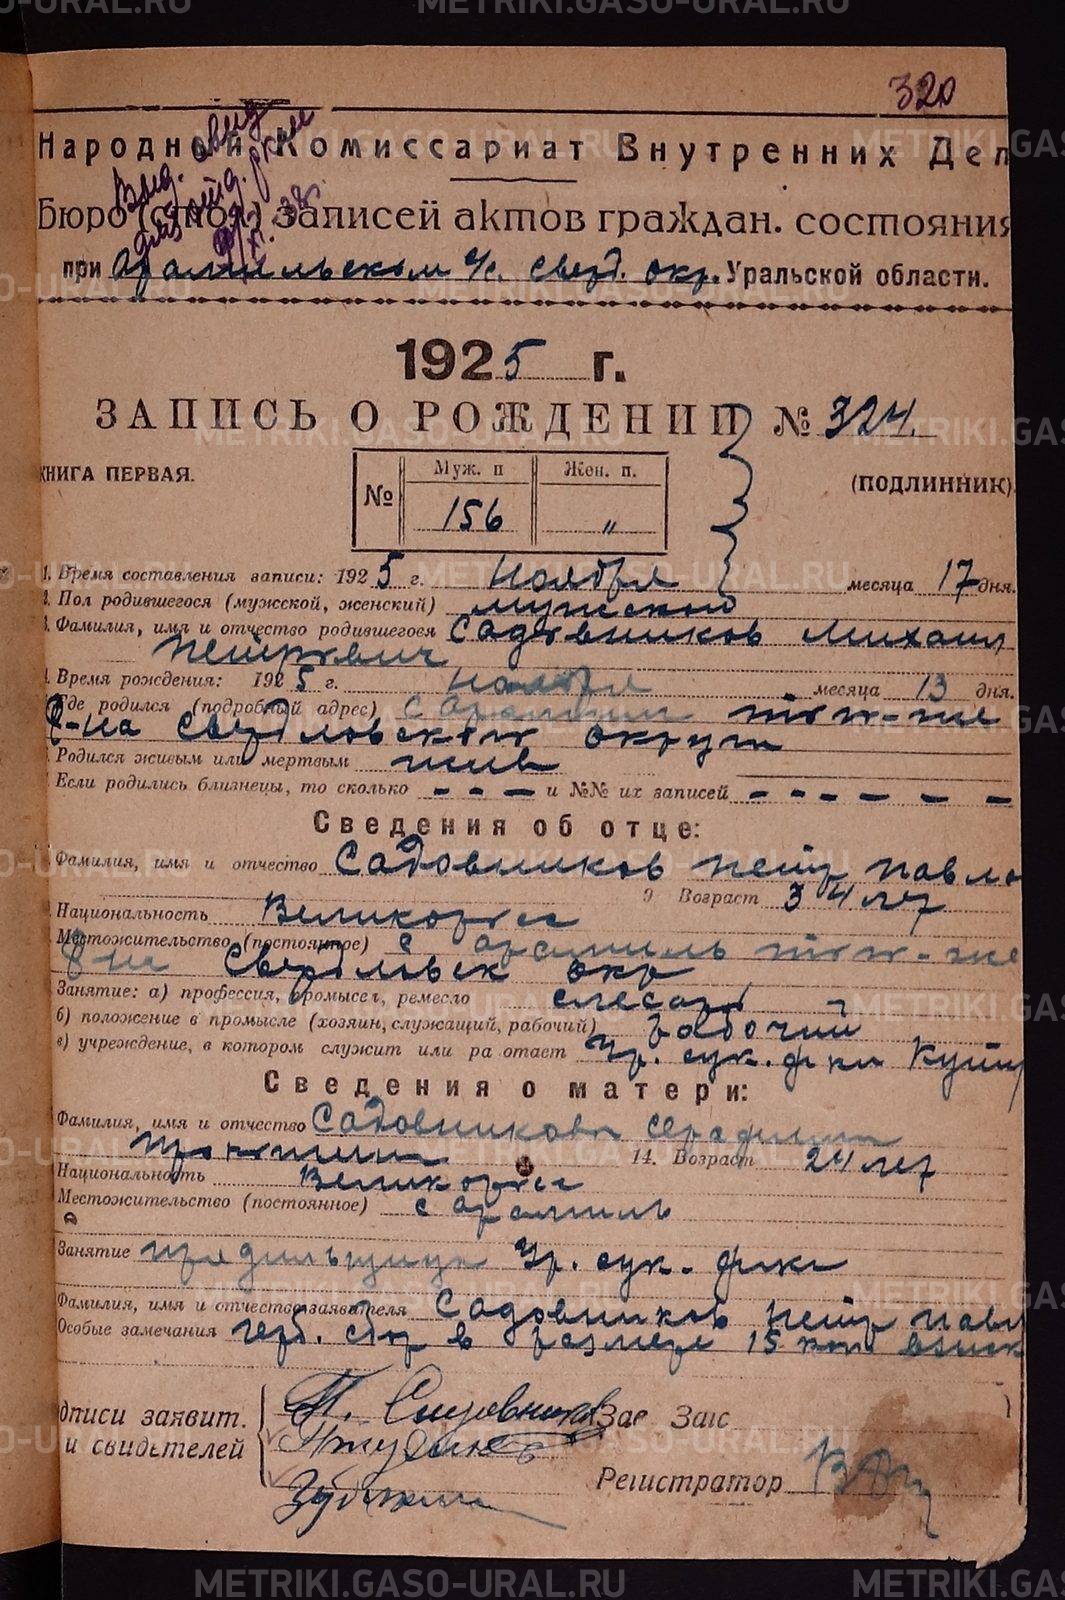 320
Народный Комиссариат Внутренних Дел
Выд.
Бюро (стол) записей актов граждан. состояния
при Арамильском с/с. сверд. окр. Уральской области.
1925 г.
ЗАПИСЬ О РОЖДЕНИИ № 324.
КНИГА ПЕРВАЯ.
(ПОДЛИННИК)
№ Муж. п Жен. п.
156 „
1. Время составления записи: 1925 г. Ноября месяца 17 дня.
2. Пол родившегося (мужской, женский) мужской
3. Фамилия, имя и отчество родившегося Садовников Михаил
Петрович
4. Время рождения: 1925 г. ноября месяца 13 дня.
Где родился (подробный адрес) с Арамили того-же
Р-на Свердловского округа
Родился живым или мертвым жив
Если родились близнецы, то сколько - - - и №№ их записей - - - - - -
Сведения об отце:
Фамилия, имя и отчество Садовников Петр Павло
9 Возраст 34 лет
Национальность Великоросс
Местожительство (постоянное) с Арамиль того-же
Р-на Свердловск окр
Занятие: а) профессия, промысел, ремесло слесарь
б) положение в промысле (хозяин, служащий, рабочий) рабочий
в) учреждение, в котором служит или ра отает Ур. сук. ф ки
Сведения о матери:
Фамилия, имя и отчество Садовникова Серафима
14. Возраст 24 лет
Национальность Великоросс
Местожительство (постоянное) с Арамиль
Занятие прядильщица Ур. сук. ф-ки
Фамилия, имя и отчество заявителя Садовников Петр Павл
Особые замечания герб. сбор в размере 15 коп взыск
одписи заявит. П. Садовников Зав Загс
и свидетелей
Регистратор
METRIKI.GASO-URAL.RU